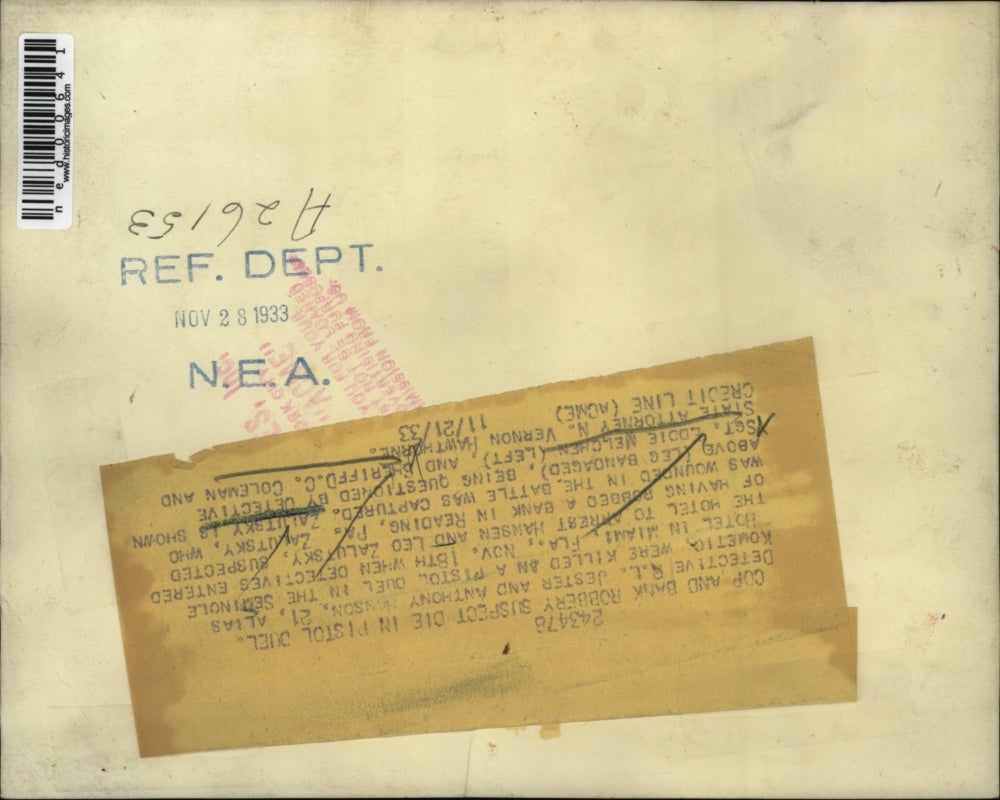 n e d 0 0 6 4 1
www.historicimages.com
A26153
REF. DEPT.
NOV 28 1933
N.E.A.
243478
COP AND BANK ROBBERY SUSPECT DIE IN PISTOL DUEL.
DETECTIVE R.L. JESTER AND ANTHONY HENSON, 21, ALIAS
KOMETIC, WERE KILLED IN A PISTOL DUEL IN THE SEMINOLE
HOTEL IN MIAMI, FLA., NOV. 18TH WHEN DETECTIVES ENTERED
THE HOTEL TO ARREST HANSEN AND LEO ZALUTSKY, SUSPECTED
OF HAVING ROBBED A BANK IN READING, PA. ZALUTSKY, WHO
WAS WOUNDED IN THE BATTLE WAS CAPTURED. ZALUTSKY IS SHOWN
ABOVE (LEG BANDAGED), BEING QUESTIONED BY DETECTIVE
SGT. EDDIE MELCHEN (LEFT), AND SHERIFF D.C. COLEMAN AND
STATE ATTORNEY N. VERNON HAWTHORNE.
CREDIT LINE (ACME) 11/21/33